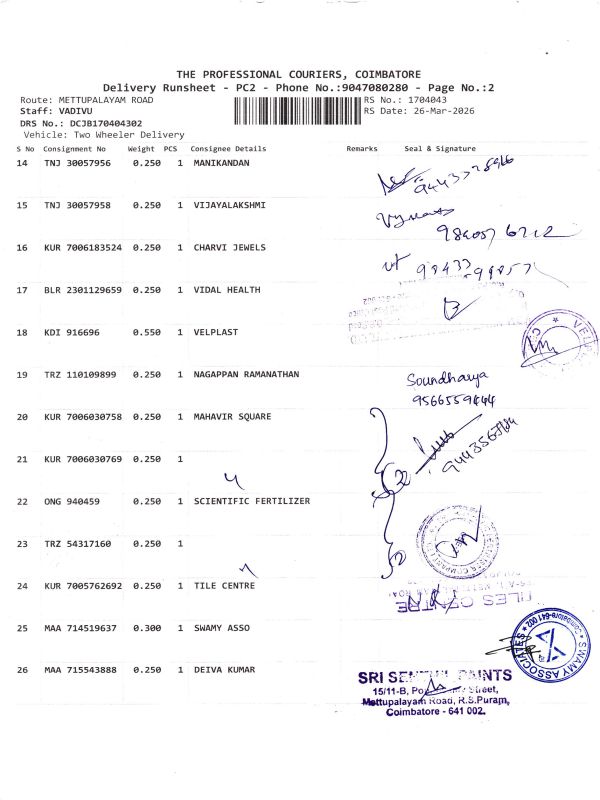 THE PROFESSIONAL COURIERS, COIMBATORE
Delivery Runsheet - PC2 - Phone No.:9047080280 - Page No.:2
Route: METTUPALAYAM ROAD
RS No.: 1704043
Staff: VADIVU
RS Date: 26-Mar-2026
DRS No.: DCJB170404302
Vehicle: Two Wheeler Delivery
S No Consignment No Weight PCS Consignee Details Remarks Seal & Signature
14 TNJ 30057956 0.250 1 MANIKANDAN
15 TNJ 30057958 0.250 1 VIJAYALAKSHMI
16 KUR 7006183524 0.250 1 CHARVI JEWELS
17 BLR 2301129659 0.250 1 VIDAL HEALTH
18 KDI 916696 0.550 1 VELPLAST
19 TRZ 110109899 0.250 1 NAGAPPAN RAMANATHAN
Soundharya
20 KUR 7006030758 0.250 1 MAHAVIR SQUARE
21 KUR 7006030769 0.250 1
22 ONG 940459 0.250 1 SCIENTIFIC FERTILIZER
23 TRZ 54317160 0.250 1
24 KUR 7005762692 0.250 1 TILE CENTRE
TILES CENTRE
25 MAA 714519637 0.300 1 SWAMY ASSO
SWAMY ASSOCIATES * Coimbatore-641 002 *
26 MAA 715543888 0.250 1 DEIVA KUMAR
SRI PAINTS
15/11-B, Street,
Mettupalayam Road, R.S.Puram,
Coimbatore - 641 002.